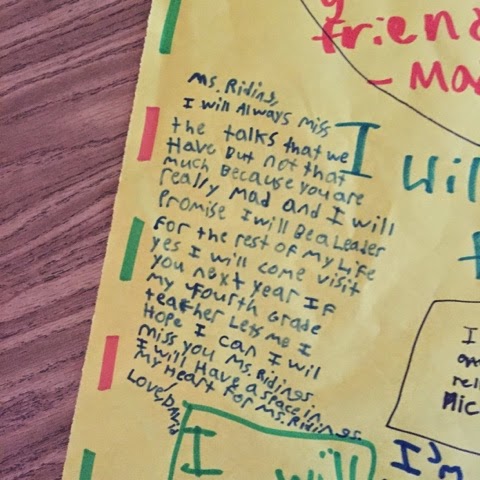 friend
- Ma
Ms. Riding,
I will Always miss
the talks that we
Have But not that
much Because you are
really Mad and I will
Promise I will Be a Leader
For the rest of My Life
yes I will come visit
you next year IF
my Fourth Grade
teacher Lets me I
Hope I can I wil
miss you Ms. Ridings
I will Have a space in
My Heart For Ms. Ridings.
Love,
I
wil
I
rel
Mic
I
will
I'm